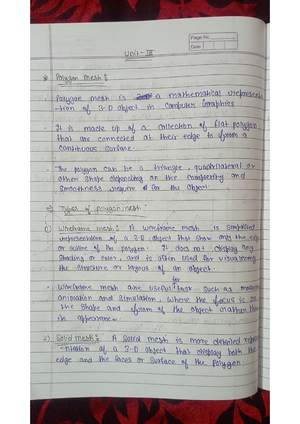 Page No:
Date
Unit - III
Polygon Mesh :
Polygon mesh is a mathematical representa
-tion of 3-D object in Computer Graphics
It is made up of a collection of flat polygon
that are connected at their edge to form a
continuous surface.
The polygon can be a triangle, quadrilateral or
other shape depending on the complexity and
smoothness require for the object.
Types of polygon mesh :
1) Wireframe mesh : A wireframe mesh is simplified
representation of a 3-D object that show only the edge
or outline of the polygon. It does not display any
shading or color, and is often used for visualizing
the structure or layout of an object.
for
Wireframe mesh are useful task such as
animation and simulation, where the focus is on
the shape and form of the object rather than
its appearance.
2) Solid mesh : A solid mesh is more detailed
-ntation of a 3-D object that display both the
edge and the faces or surface of the polygon.